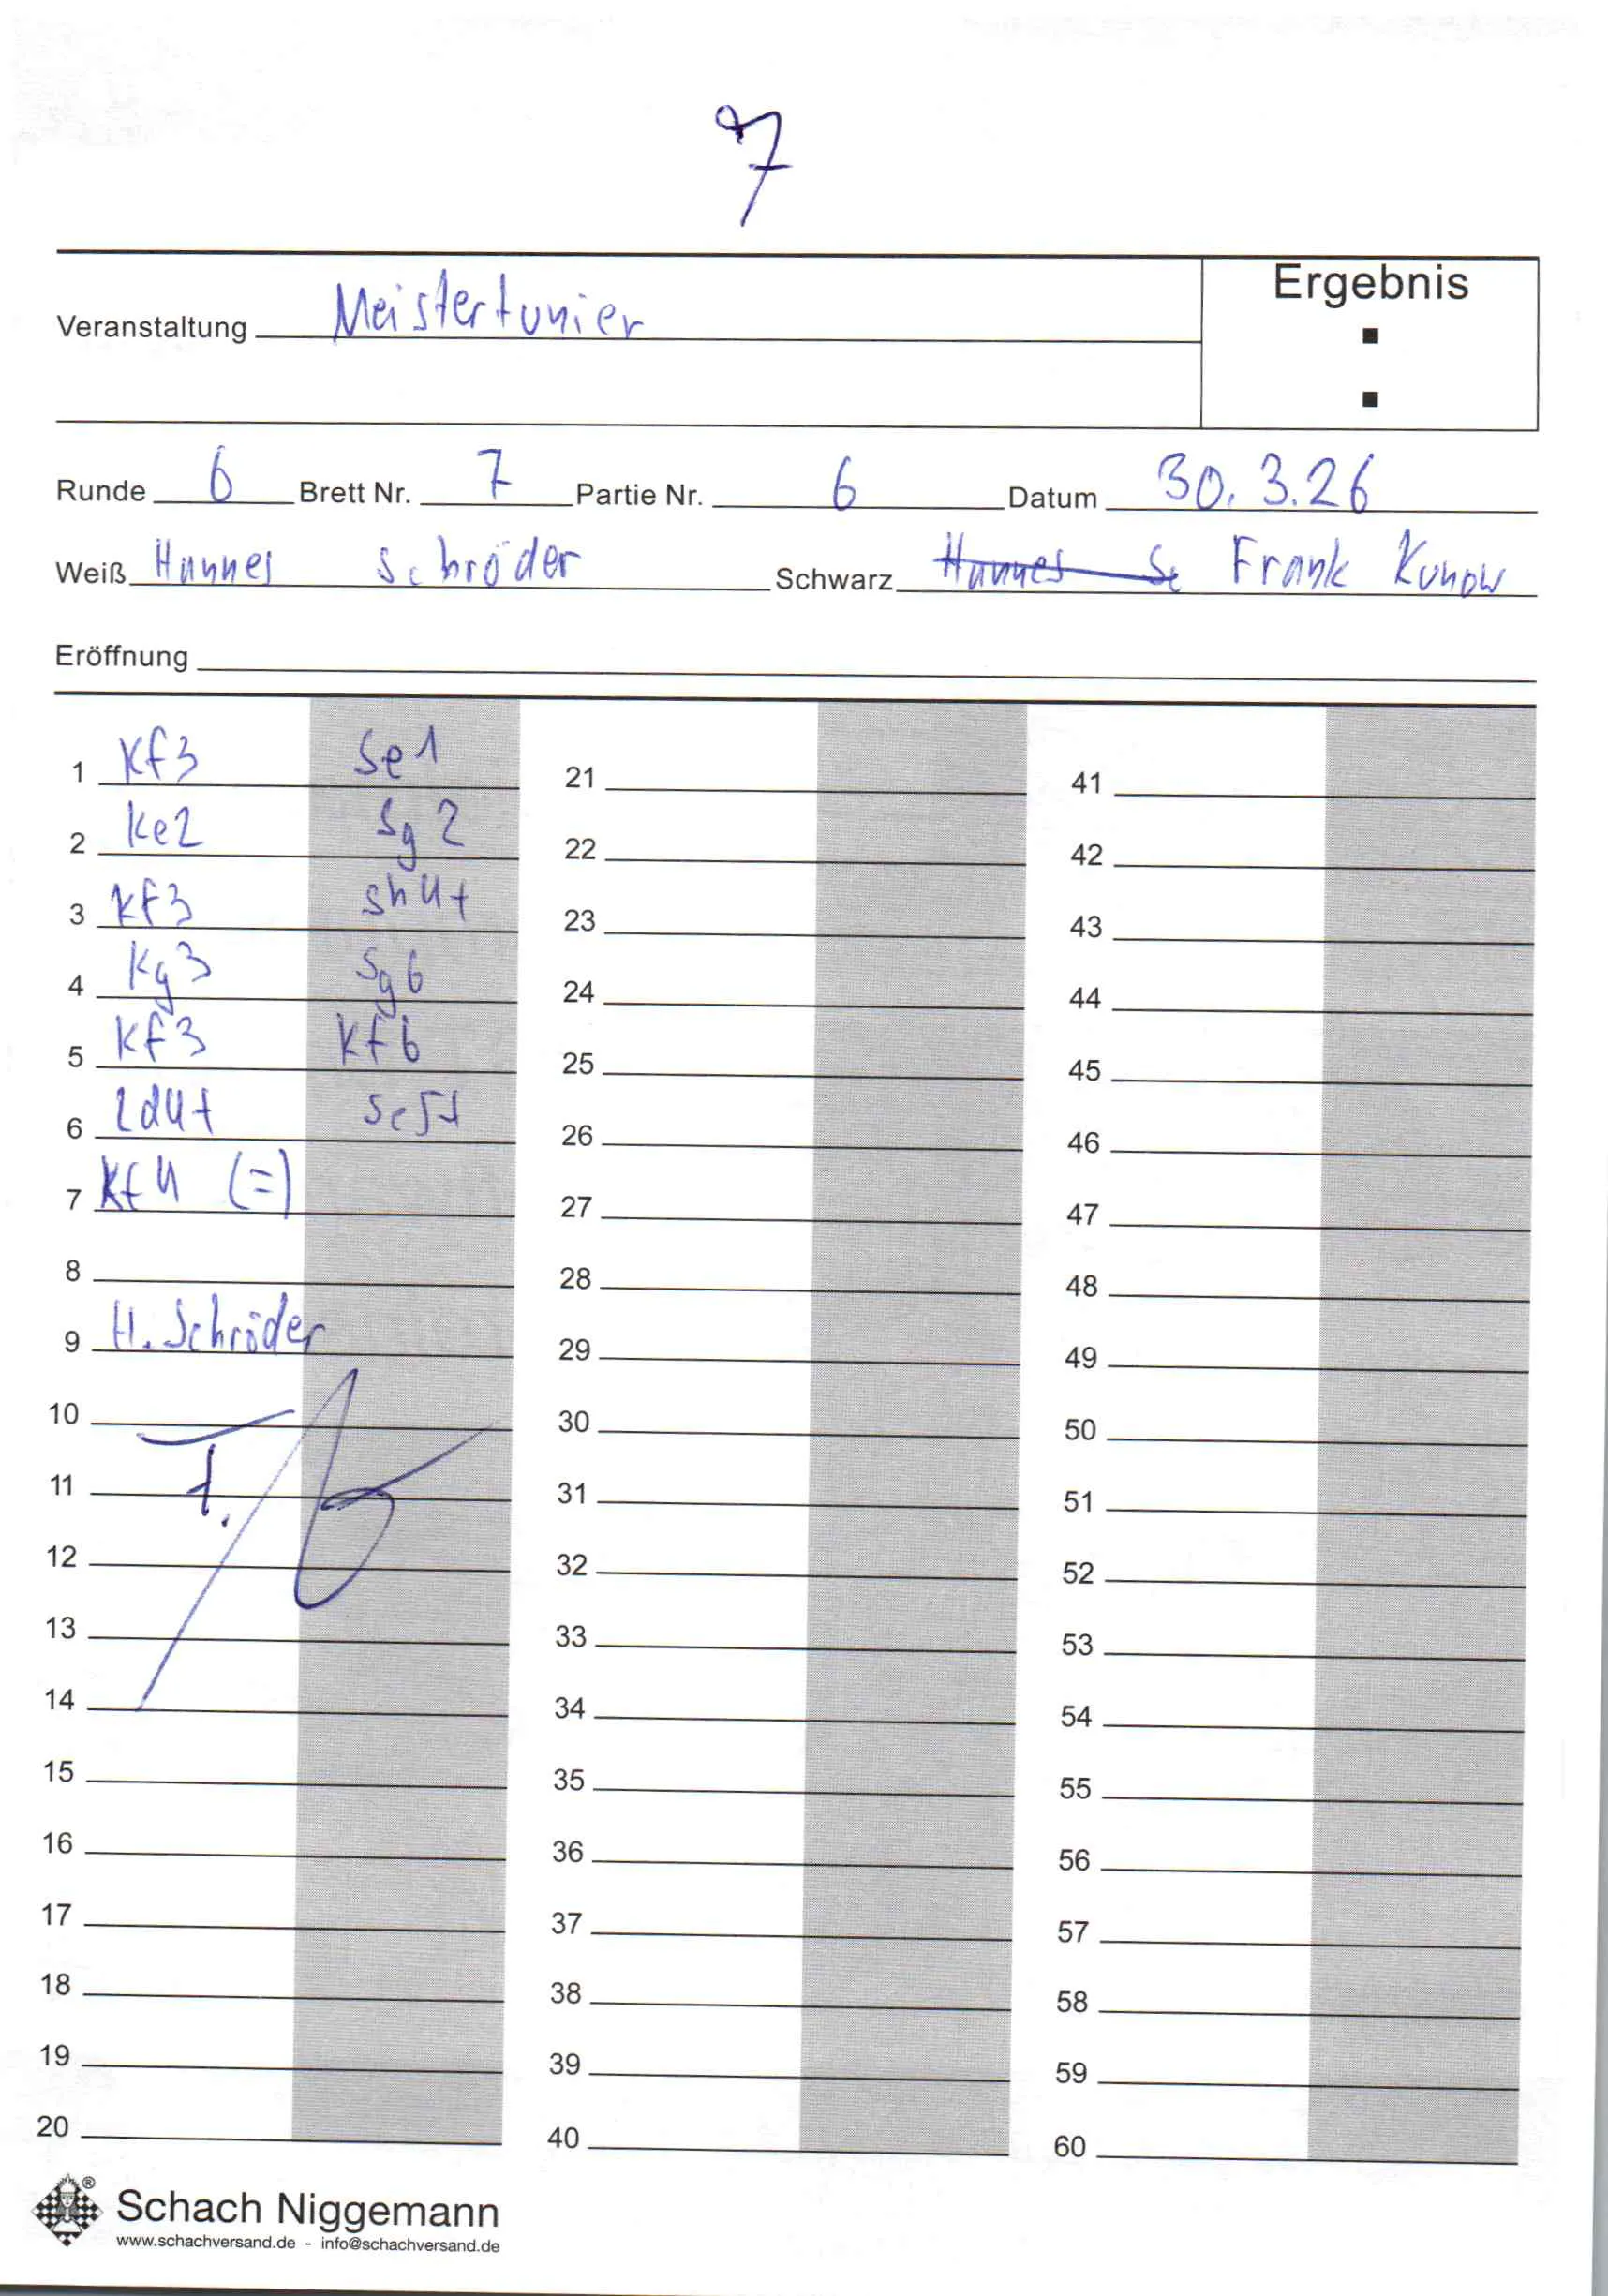 7
Ergebnis
Veranstaltung Meistertunier
Runde 6 Brett Nr. 7 Partie Nr. 6 Datum 30.3.26
Weiß Hannes Schröder Schwarz Hannes Sc Frank Kunow
Eröffnung
1 Kf3 Se1 21 41
2 Ke2 Sg2 22 42
3 Kf3 Sh4+ 23 43
4 Kg3 Sg6 24 44
5 Kf3 Kf6 25 45
6 Ld4+ Se5+ 26 46
7 Kf4 (=) 27 47
8 28 48
9 H. Schröder 29 49
10 30 50
11 31 51
12 32 52
13 33 53
14 34 54
15 35 55
16 36 56
17 37 57
18 38 58
19 39 59
20 40 60
Schach Niggemann ®
www.schachversand.de - info@schachversand.de